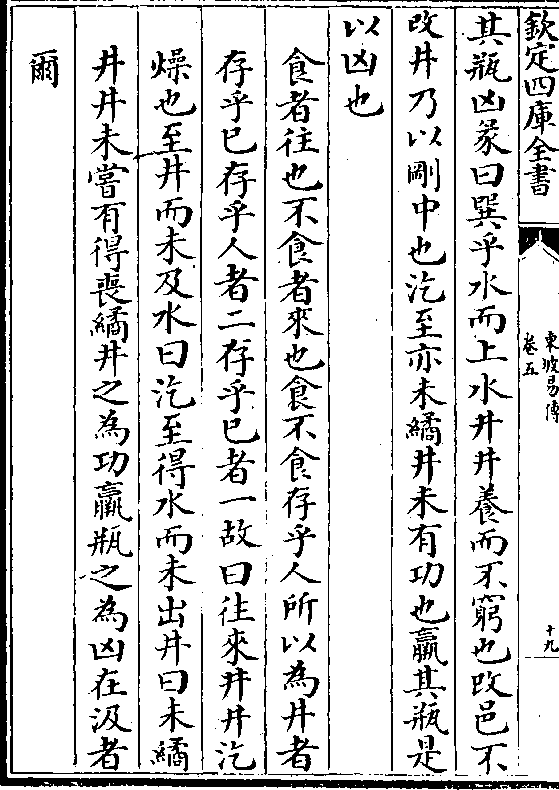 欽定四庫全書
東坡易傳
卷五
十九
其瓶凶彖曰巽乎水而上水井井養而不窮也改邑不
改井乃以剛中也汔至亦未繘井未有功也羸其瓶是
以凶也
食者往也不食者來也食不食存乎人所以為井者
存乎已存乎人者二存乎已者一故曰往來井井汔
燥也至井而未及水曰汔至得水而未出井曰未繘
井井未嘗有得喪繘井之為功羸瓶之為凶在汲者
爾